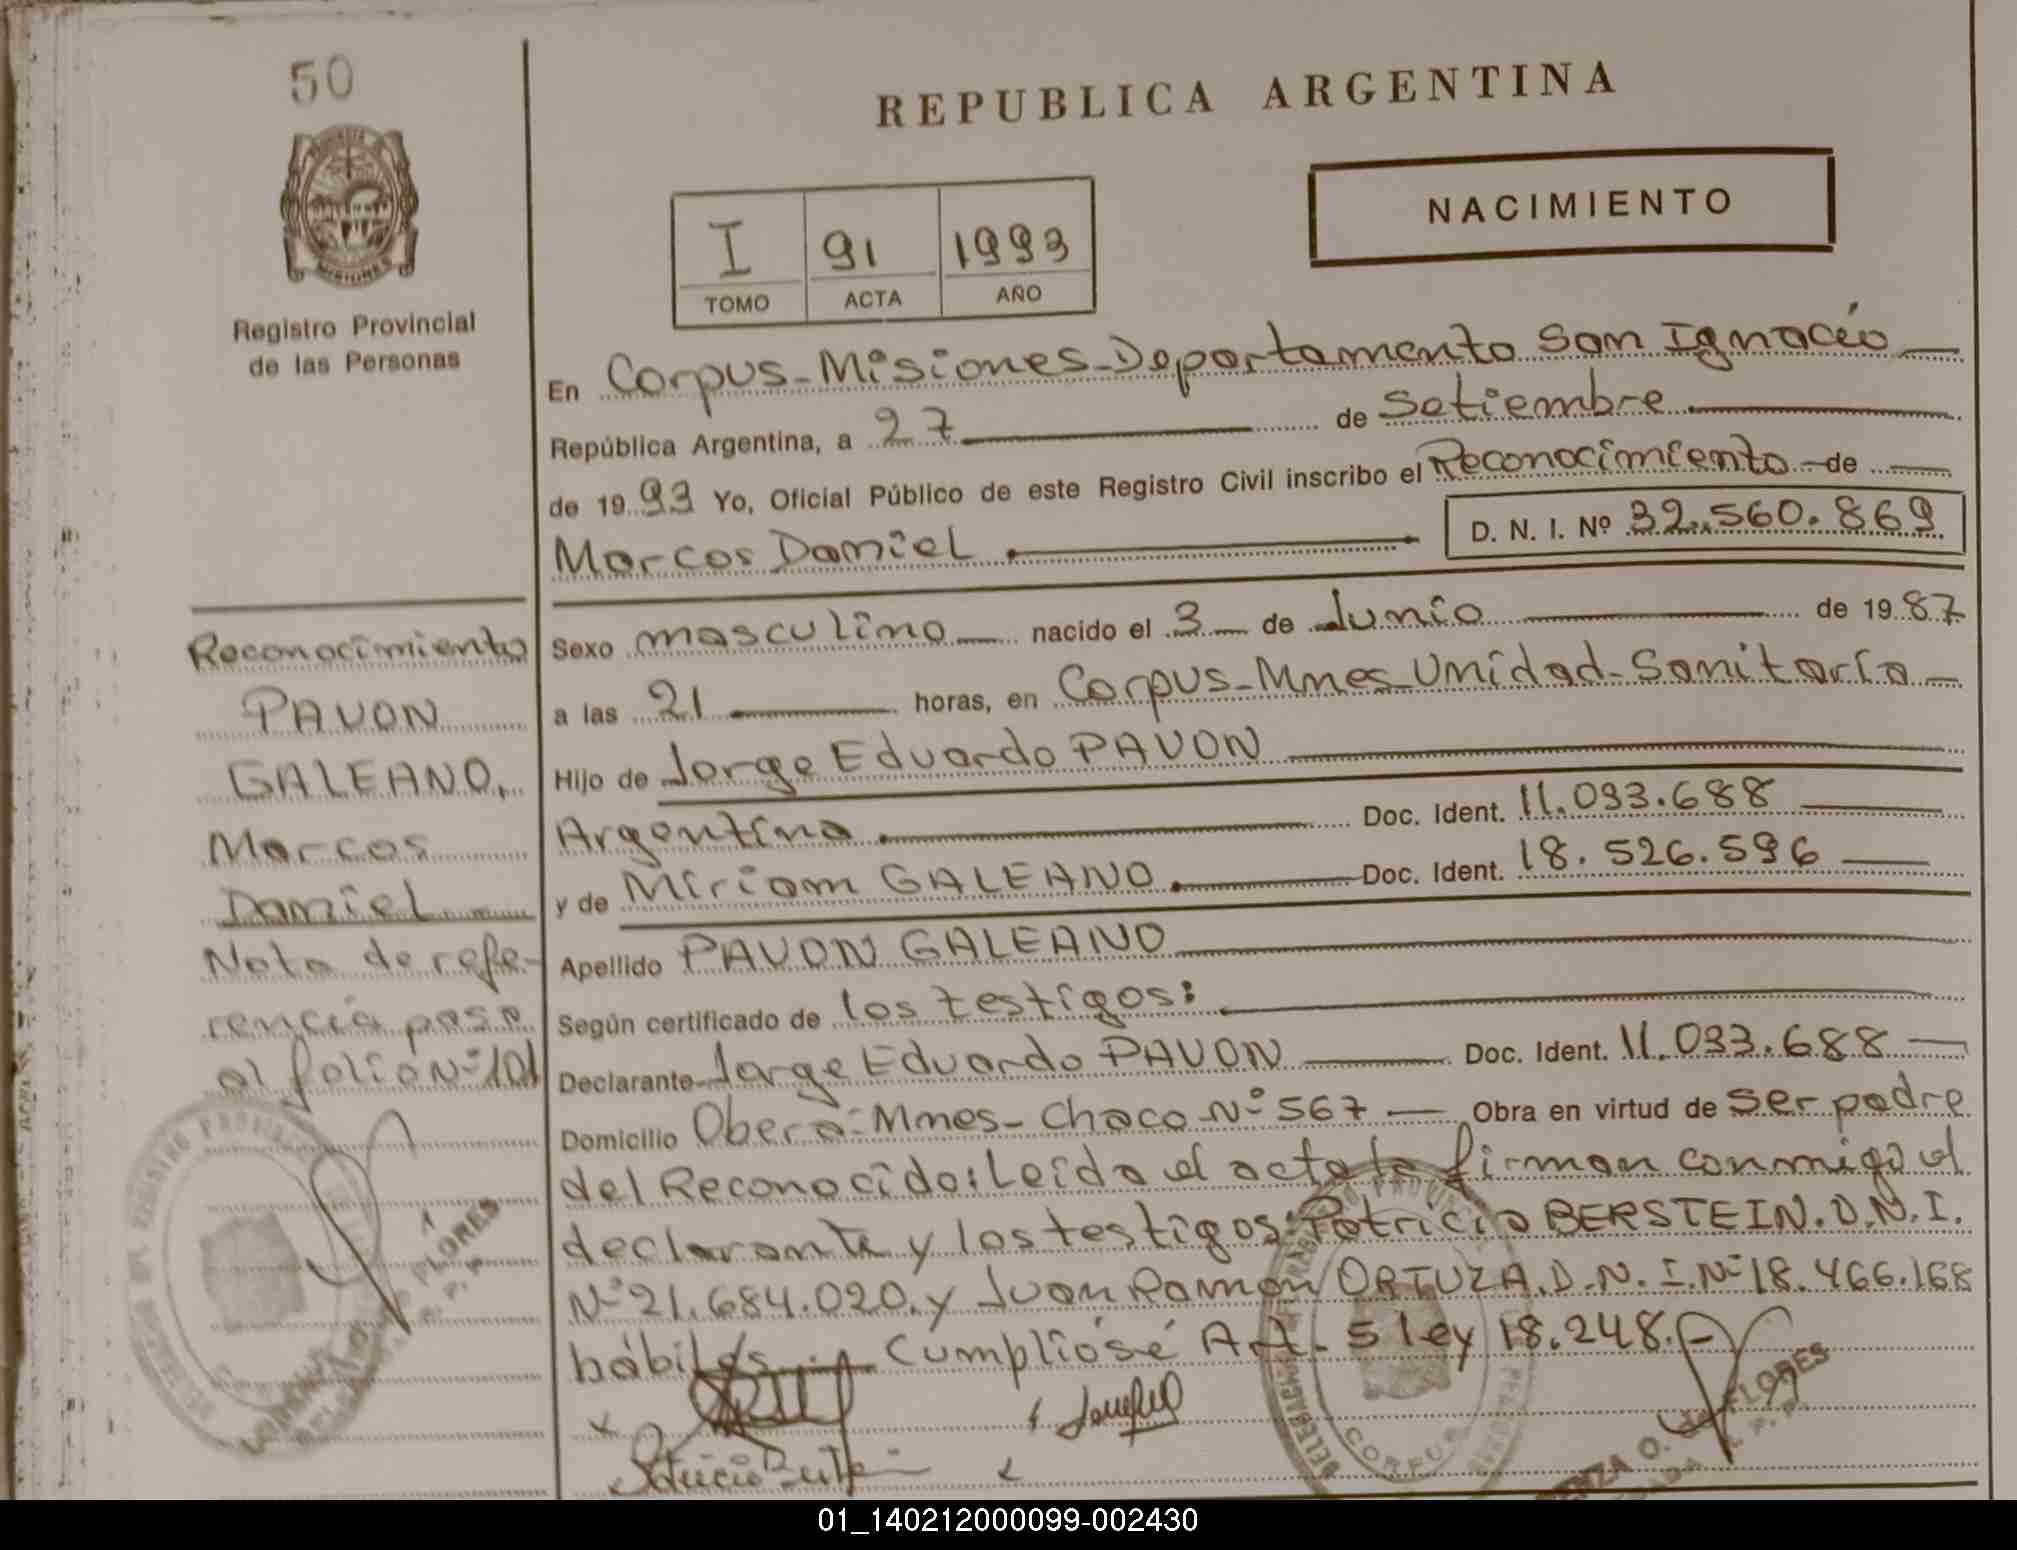 50
REPUBLICA ARGENTINA
NACIMIENTO
I 91 1993
TOMO ACTA AÑO
MISIONES
Registro Provincial
de las Personas
En Corpus-Misiones-Departamento San Ignacio
República Argentina, a 27 de Setiembre
de 1993 Yo, Oficial Público de este Registro Civil inscribo el Reconocimiento de
Marcos Daniel
D. N. I. Nº 32.560.869
Reconocimiento
PAVON
GALEANO,
Marcos
Daniel
Nota de refe-
rencia pase
al folio Nº 101
Sexo masculino nacido el 3 de Junio de 1987
a las 21 horas, en Corpus-Mnes-Unidad-Sanitaria
Hijo de Jorge Eduardo PAVON
Argentina Doc. Ident. 11.093.688
y de Miriam GALEANO Doc. Ident. 18.526.596
Apellido PAVON GALEANO
Según certificado de los testigos:
Declarante Jorge Eduardo PAVON Doc. Ident. 11.093.688
Domicilio Oberá-Mnes-Chaco Nº 567 Obra en virtud de ser padre
del Reconocido: Leída el acta la firman conmigo el
declarante y los testigos: Patricia BERSTEIN. D.N.I.
Nº 21.684.020. y Juan Ramon ORTUZA. D.N.I. Nº 18.466.168
hábiles. Cumplióse Art. 5 ley 18.248.-
CORPUS
FLORES
FLORES
01_140212000099-002430